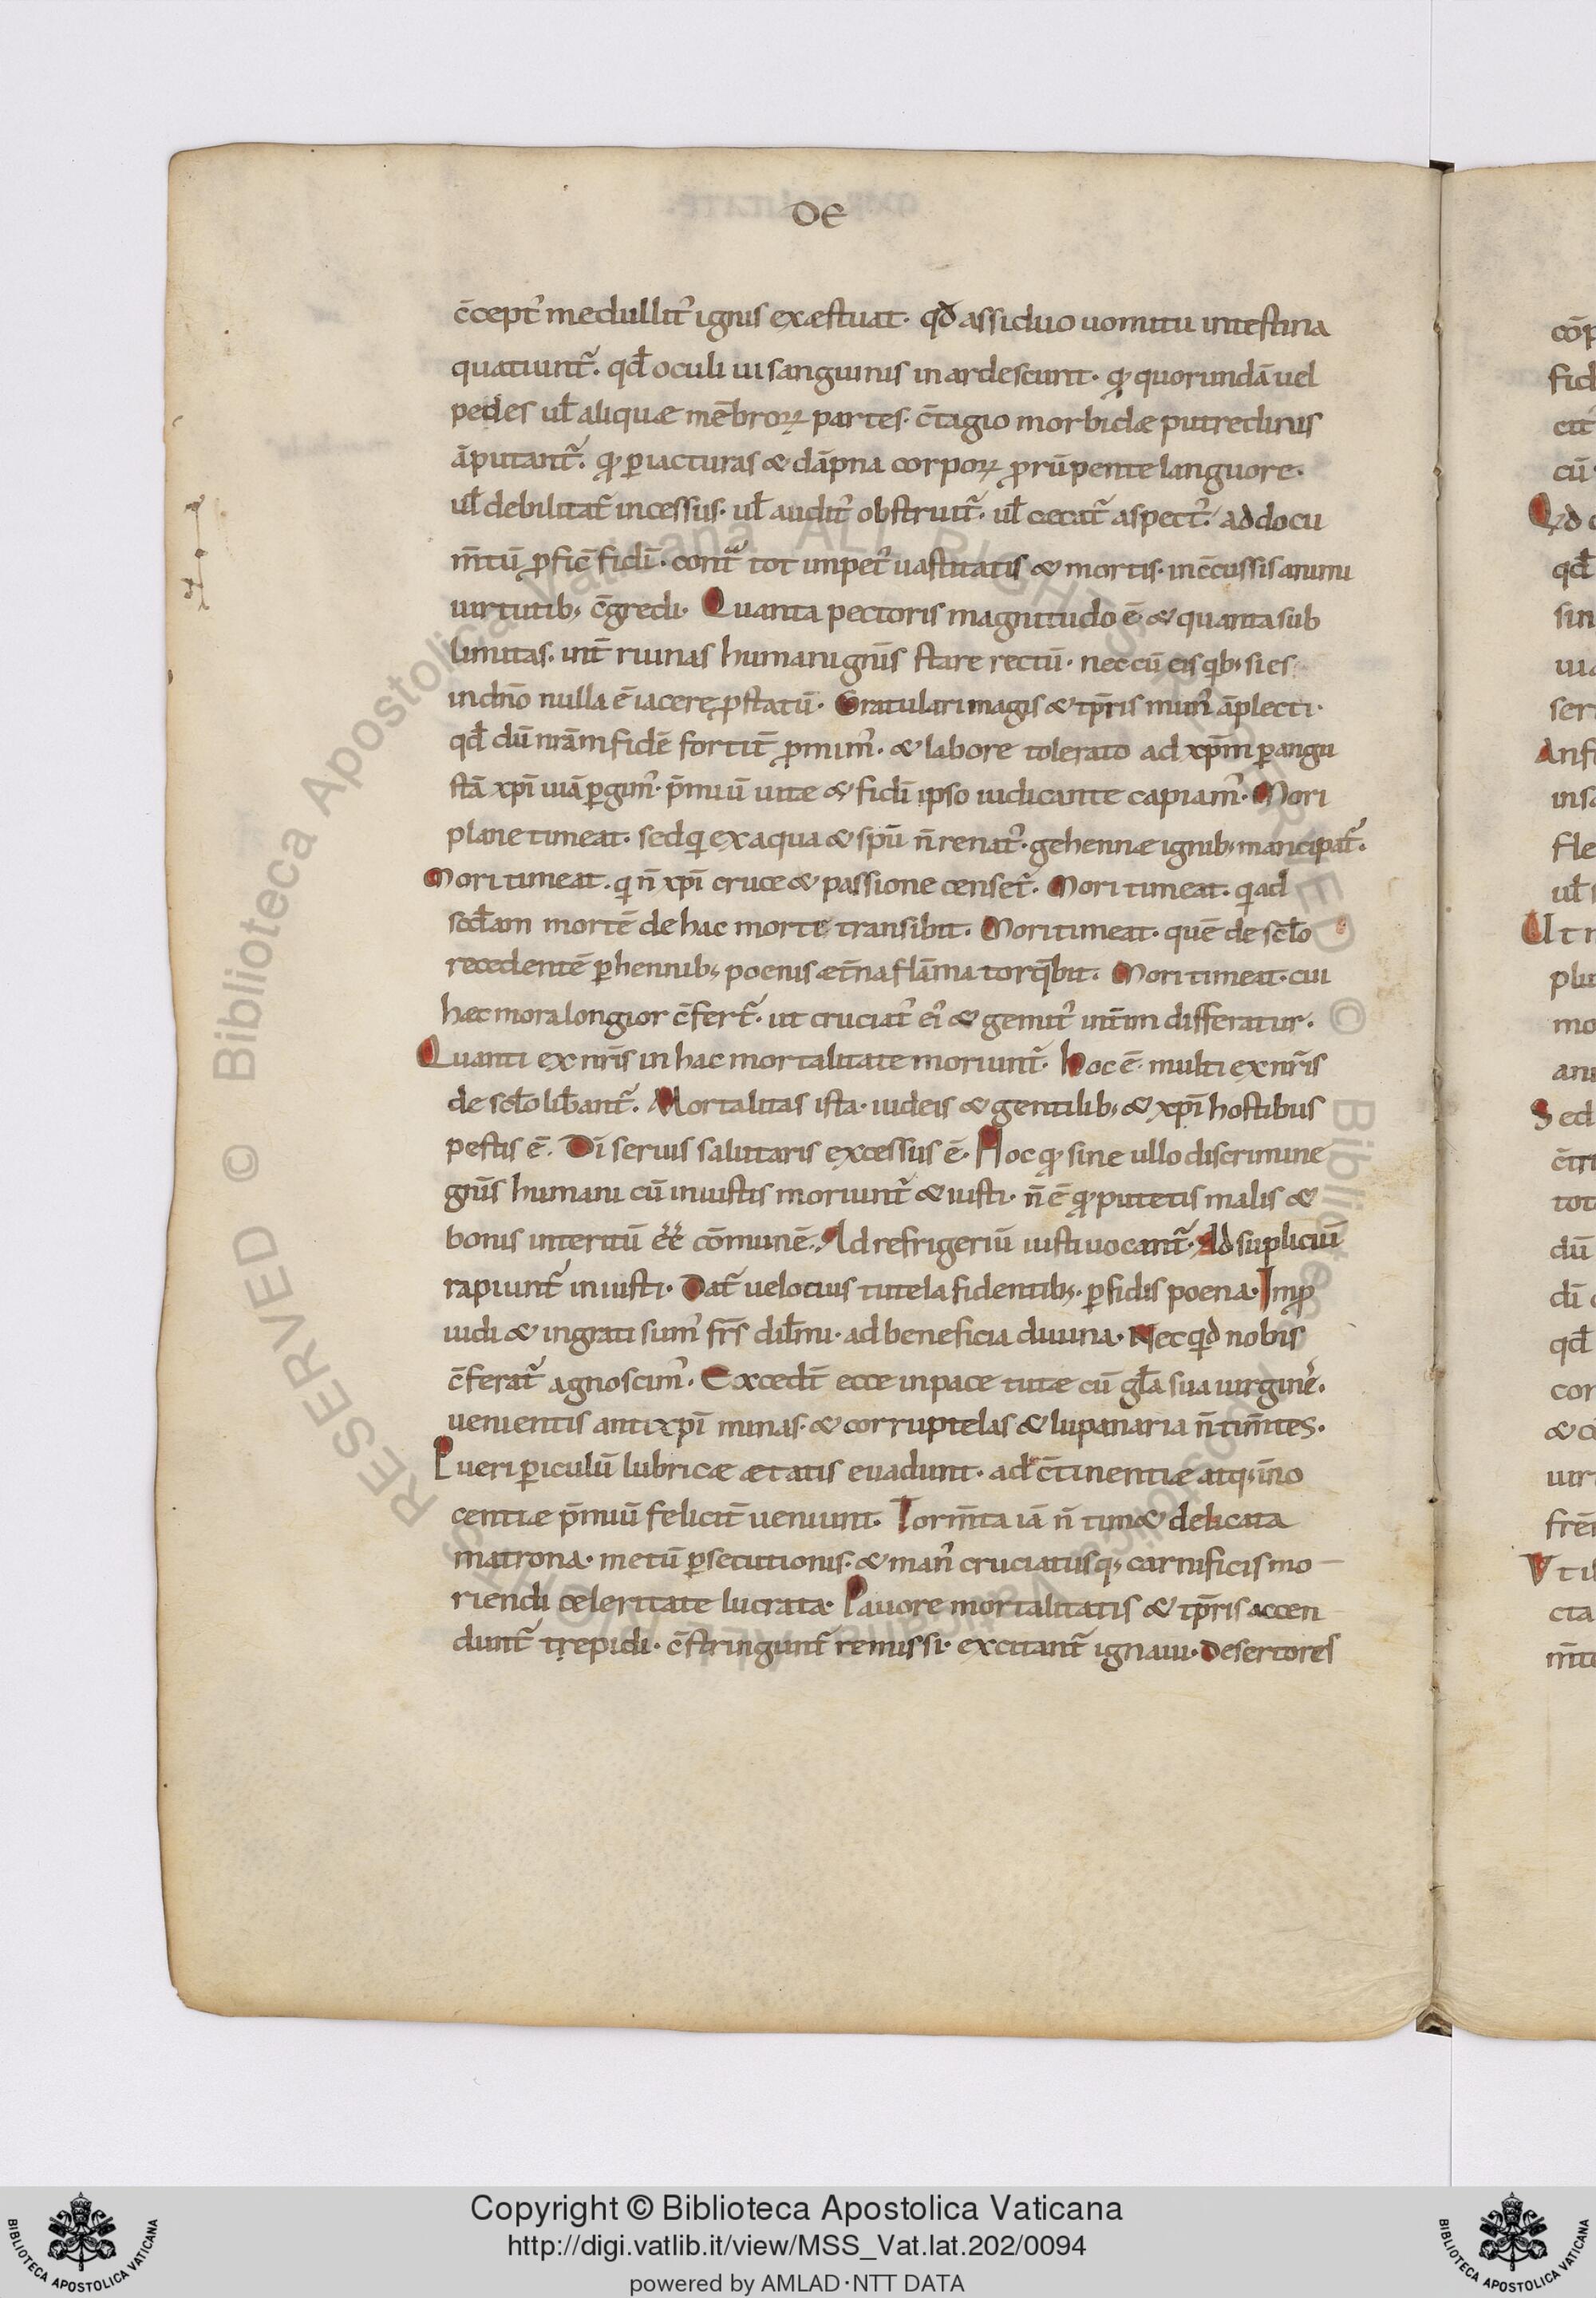 DE
c̄cept᾿ medullit᾿ ignis exæstuat· qđ assiduo uomitu intestina
quatiunt᷑· qđ oculi ui sanguinis inardescunt· qꝫ quorundā uel
pedes ul̄ aliquæ mēbroꝝ partes· c̄tagio morbidæ putredinis
āputant᷑· qꝫ ꝑ iacturas & dāpna corpoꝝ ꝓrūpente languore·
ul̄ debilitat᷑ incessus· ul̄ audit᾿ obstruit᷑· ul̄ cecat᷑ aspect᾿· ad docu
m̄tū ꝓfic̄ fidī· contᷓ tot impet᾿ uastitatis & mortis· inc̄cussis animi
uirtutib; c̄gredi· Quanta pectoris magnitudo ē & quanta sub
limitas· int̄ ruinas humani gn̄is stare rectū· nec cū eis qb; si es
in dn̄o nulla ē iacere ꝓstatū· Gratulari magis & tp̄ris mun᾿ āplecti·
qđ dū nrām fidē fortit̄ ꝓmim᾿· & labore tolerato ad xp̄m ꝑ angu
stā xp̄i uiā ꝑgim᾿· p̄miū uitæ & fidī ipso iudicante capiam᾿· Mori
plane timeat· sed qi ex aqua & sp̄u n̄ renat᾿· gehennæ ignib; mancipat᷑·
Mori timeat· qi n̄ xp̄i cruce & passione censet᷑· Mori timeat· qi ad
scđam mortē de hac morte transibit· Mori timeat· quē de scl̄o
recedentē ꝑhennib; poenis æt̄na flāma torq̄bit· Mori timeat· cui
hæc mora longior c̄fert᷑· ut cruciat᾿ ei᾿ & gemit᾿ int̄im differatur·
Quanti ex nr̄is in hac mortalitate moriunt᷑· hoc ē multi ex nr̄is
de scl̄o lib̄ant᷑· Mortalitas ista· iudeis & gentilib; & xp̄i hostibus
pestis ē· Dī seruis salutaris excessus ē· Hoc qꝫ sine ullo discrimine
gn̄is humani cū iniustis moriunt᷑ & iusti· n̄ ē qꝫ putetis malis &
bonis interitū ēē cōmunē· Ad refrigeriū iusti uocant᷑· Ad supliciū
rapiunt᷑ iniusti· Dat᷑ uelocius tutela fidentib;· ꝑfidis poena· Imꝓ
uidi & ingrati sum᾿ fr̄s dil̄mi· ad beneficia diuina· Nec qid nobis
c̄ferat᷑ agnoscim᾿· Excedt̄ ecce in pace tutæ cū gl̄a sua uirgines·
uenientis antixp̄i minas· & corruptelas & lupanaria n̄ tim̄tes·
Pueri ꝑiculū lubricæ ætatis euadunt· ad c̄tinentiæ atq; in̄o
centiæ p̄miū felicit̄ ueniunt· Torm̄ta iā n̄ tim& delicata
matrona· metū ꝑsecutionis· & man᾿ cruciatusq; carnificis mo
riendi celeritate lucrata· Pauore mortalitatis & tp̄ris accen
dunt᷑ trepidi· c̄stringunt᷑ remissi· excitant᷑ ignaui· Desertores
Copyright © Biblioteca Apostolica Vaticana
http://digi.vatlib.it/view/MSS_Vat.lat.202/0094
powered by AMLAD·NTT DATA